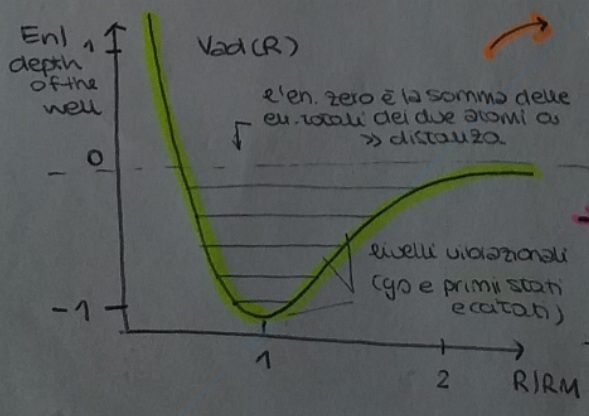 En/
depth
of the
well
1
Vad(R)
l'en. zero è la somma delle
en. totali dei due atomi a
>> distanza
0
livelli vibrazionali
(gs e primi stati
eccitati)
-1
1
2
R/RM